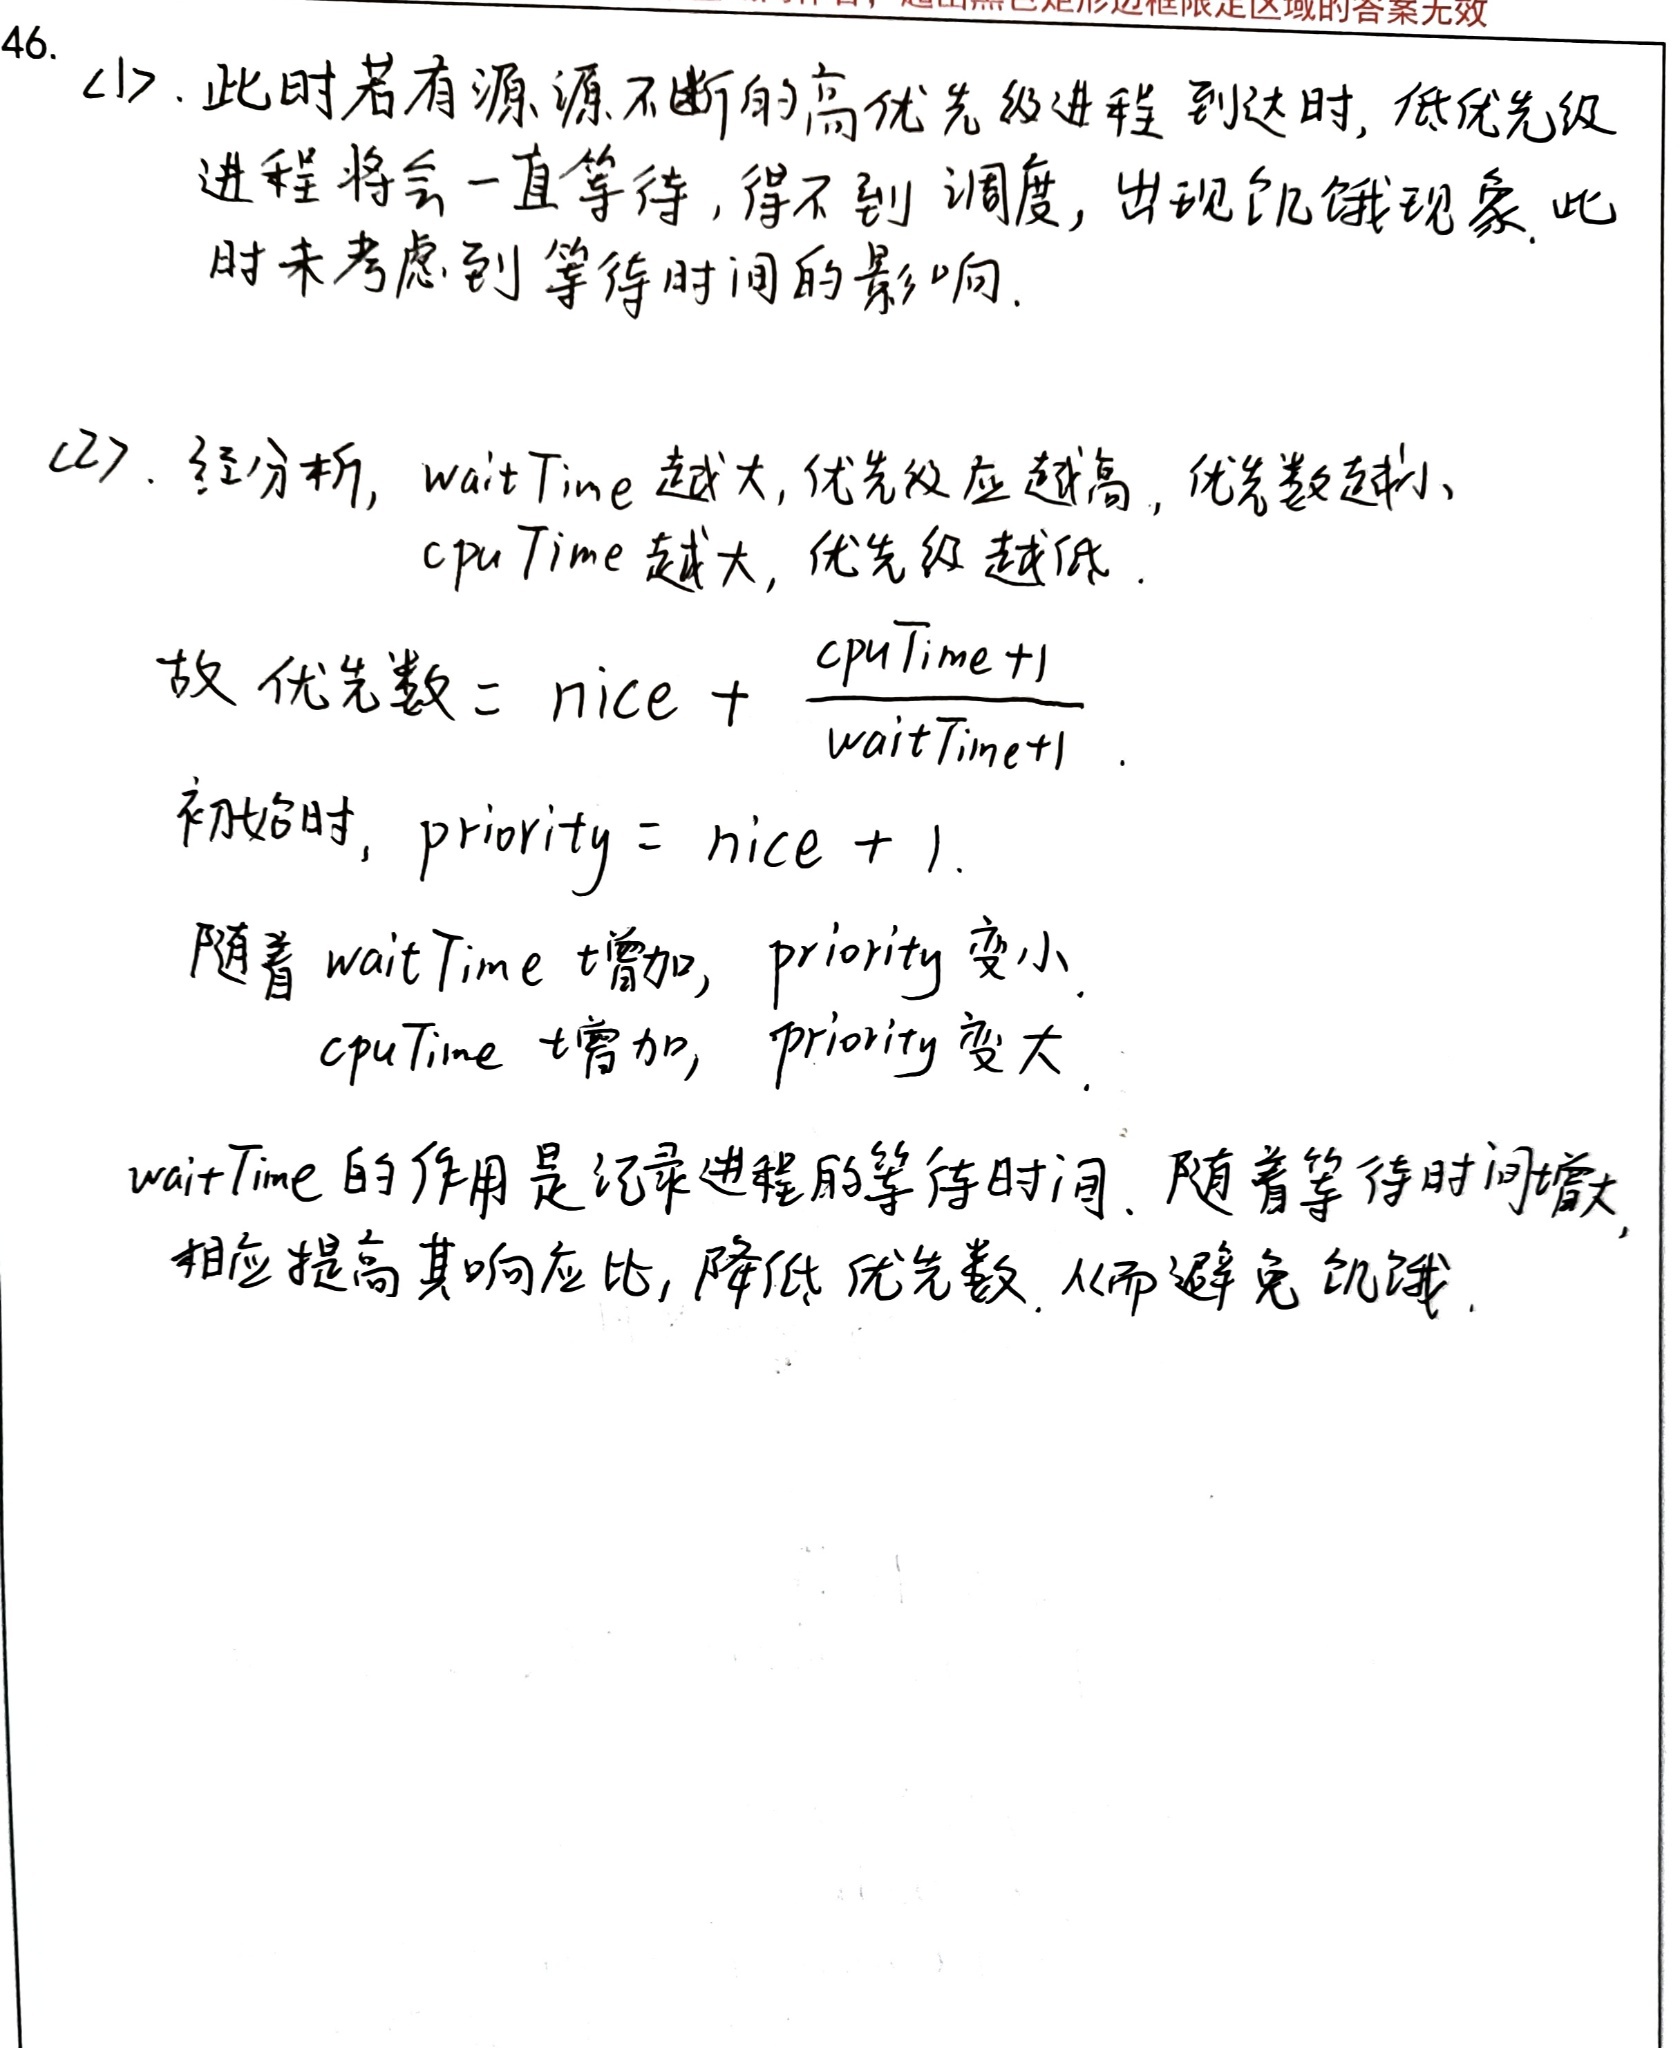 超出黑色矩形边框限定区域的答案无效
46.
<1>. 此时若有源源不断的高优先级进程到达时, 低优先级
进程将会一直等待, 得不到调度, 出现饥饿现象. 此
时未考虑到等待时间的影响.
<2>. 经分析, waitTime 越大, 优先级应越高, 优先数越小、
cpuTime 越大, 优先级越低.
故 优先数 = nice + \frac{cpuTime+1}{waitTime+1}.
初始时, priority = nice + 1.
随着 waitTime 增加, priority 变小.
cpuTime 增加, priority 变大.
waitTime 的作用是记录进程的等待时间、随着等待时间增大,
相应提高其响应比, 降低优先数. 从而避免饥饿.